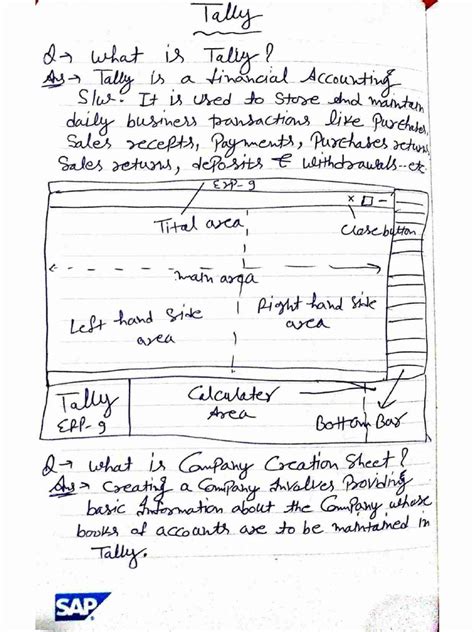 Tally
Q→ What is Tally?
Ans→ Tally is a financial Accounting
S/w. It is used to Store and maintain
daily business transactions like Purchases,
Sales recepts, Payments, Purchases return,
Sales returns, deposits & withdrawals--etc.
ERP-9
x □ -
Tital area
Close button
main area
Left hand Side
area
Right hand side
area
Tally
ERP-9
Calculater
Area
Bottom Bar
Q→ What is Company Creation Sheet?
Ans→ Creating a Company Involves Providing
basic Information about the Company whose
books of accounts are to be maintained in
Tally.
SAP